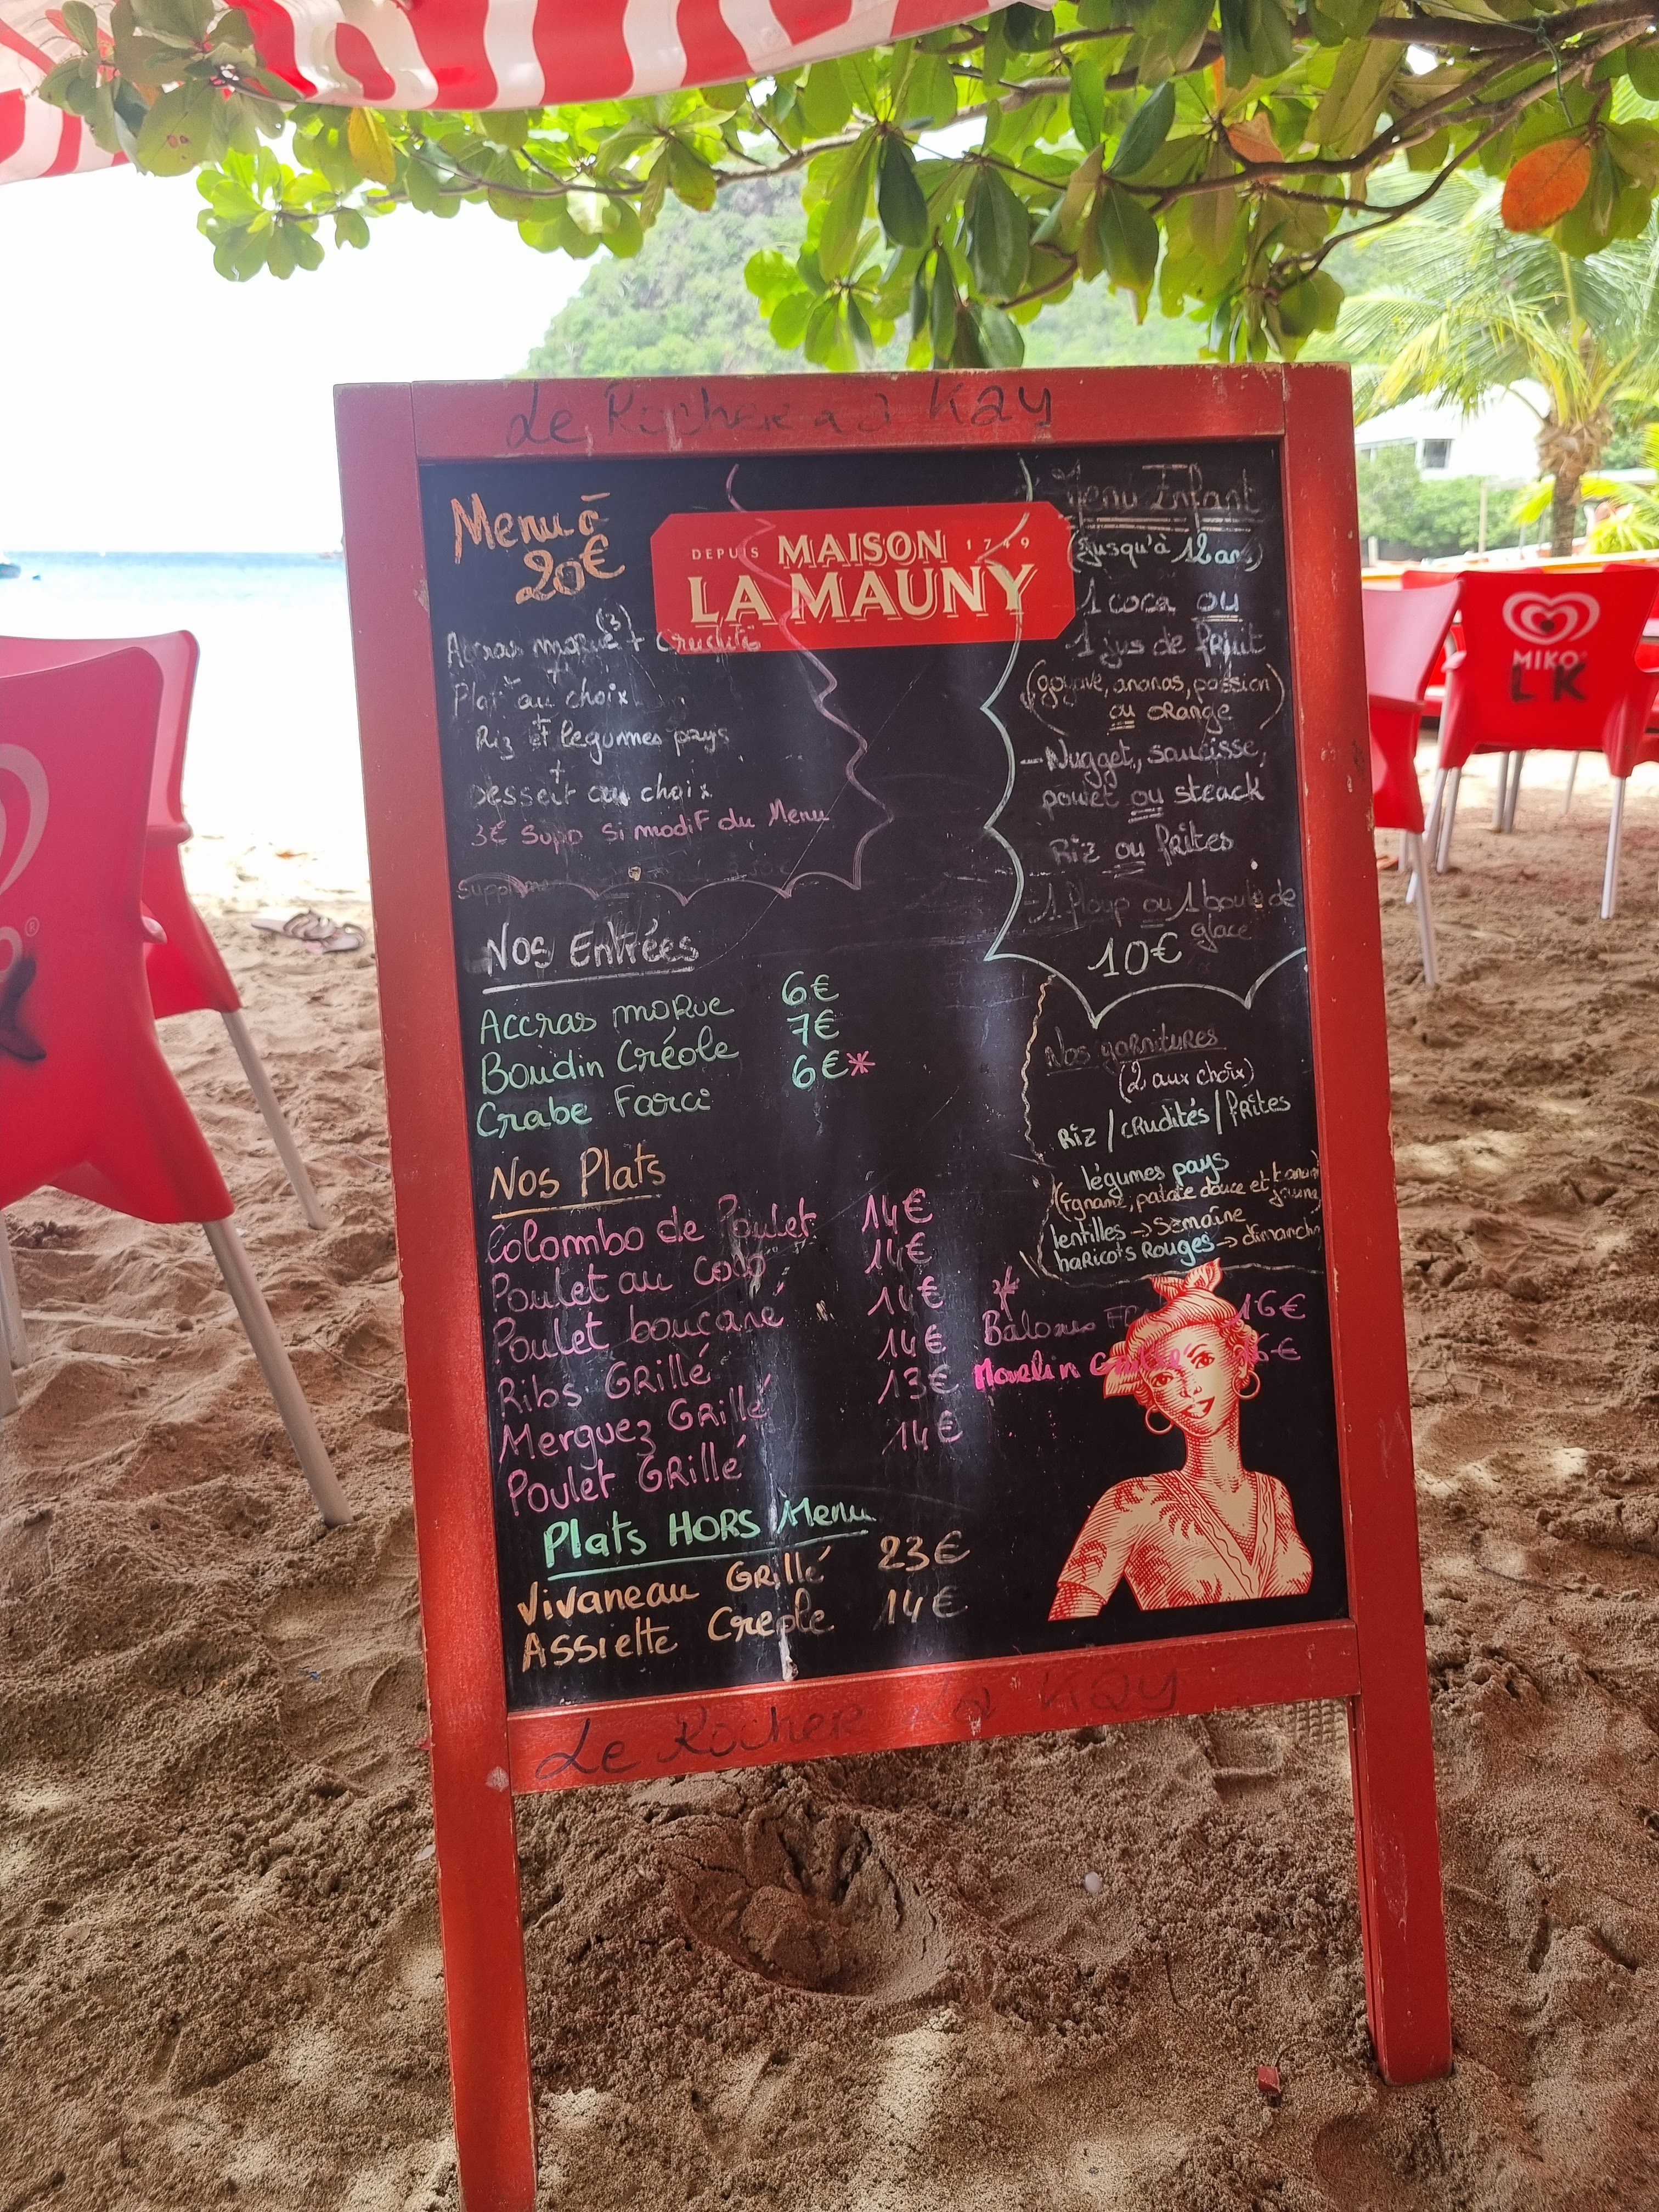 Le Rocher Kay
Menu à
20€
DEPUIS MAISON 1749
LA MAUNY
(3)
Accras morue + Crudités
+
Plat au choix
+
Riz et legumes pays
+
Dessert au choix
3€ Supp si modif du Menu
Supplement
Nos Entrées
Accras morue 6€
Boudin Créole 7€
Crabe Farci 6€*
Nos Plats
Colombo de Poulet 14€
Poulet au Coco 14€
Poulet boucané 14€
Ribs Grillé 14€
Merguez Grillé 13€
Poulet Grillé 14€
Plats HORS Menu
Vivaneau Grillé 23€
Assiette Creole 14€
Menu Enfant
(jusqu'à 12 ans)
1 coca ou
1 jus de fruit
(goyave, ananas, passion
ou orange)
- Nugget, saucisse,
poulet ou steack
Riz ou frites
- 1 Ploup ou 1 boule de
glace
10€
Nos garnitures
(2 aux choix)
Riz / crudités / frites
légumes pays
(Igname, patate douce et banane
jaune)
lentilles → Semaine
haricots Rouges → dimanche
*
16€
6€
Le Rocher Kay
MIKO
LK